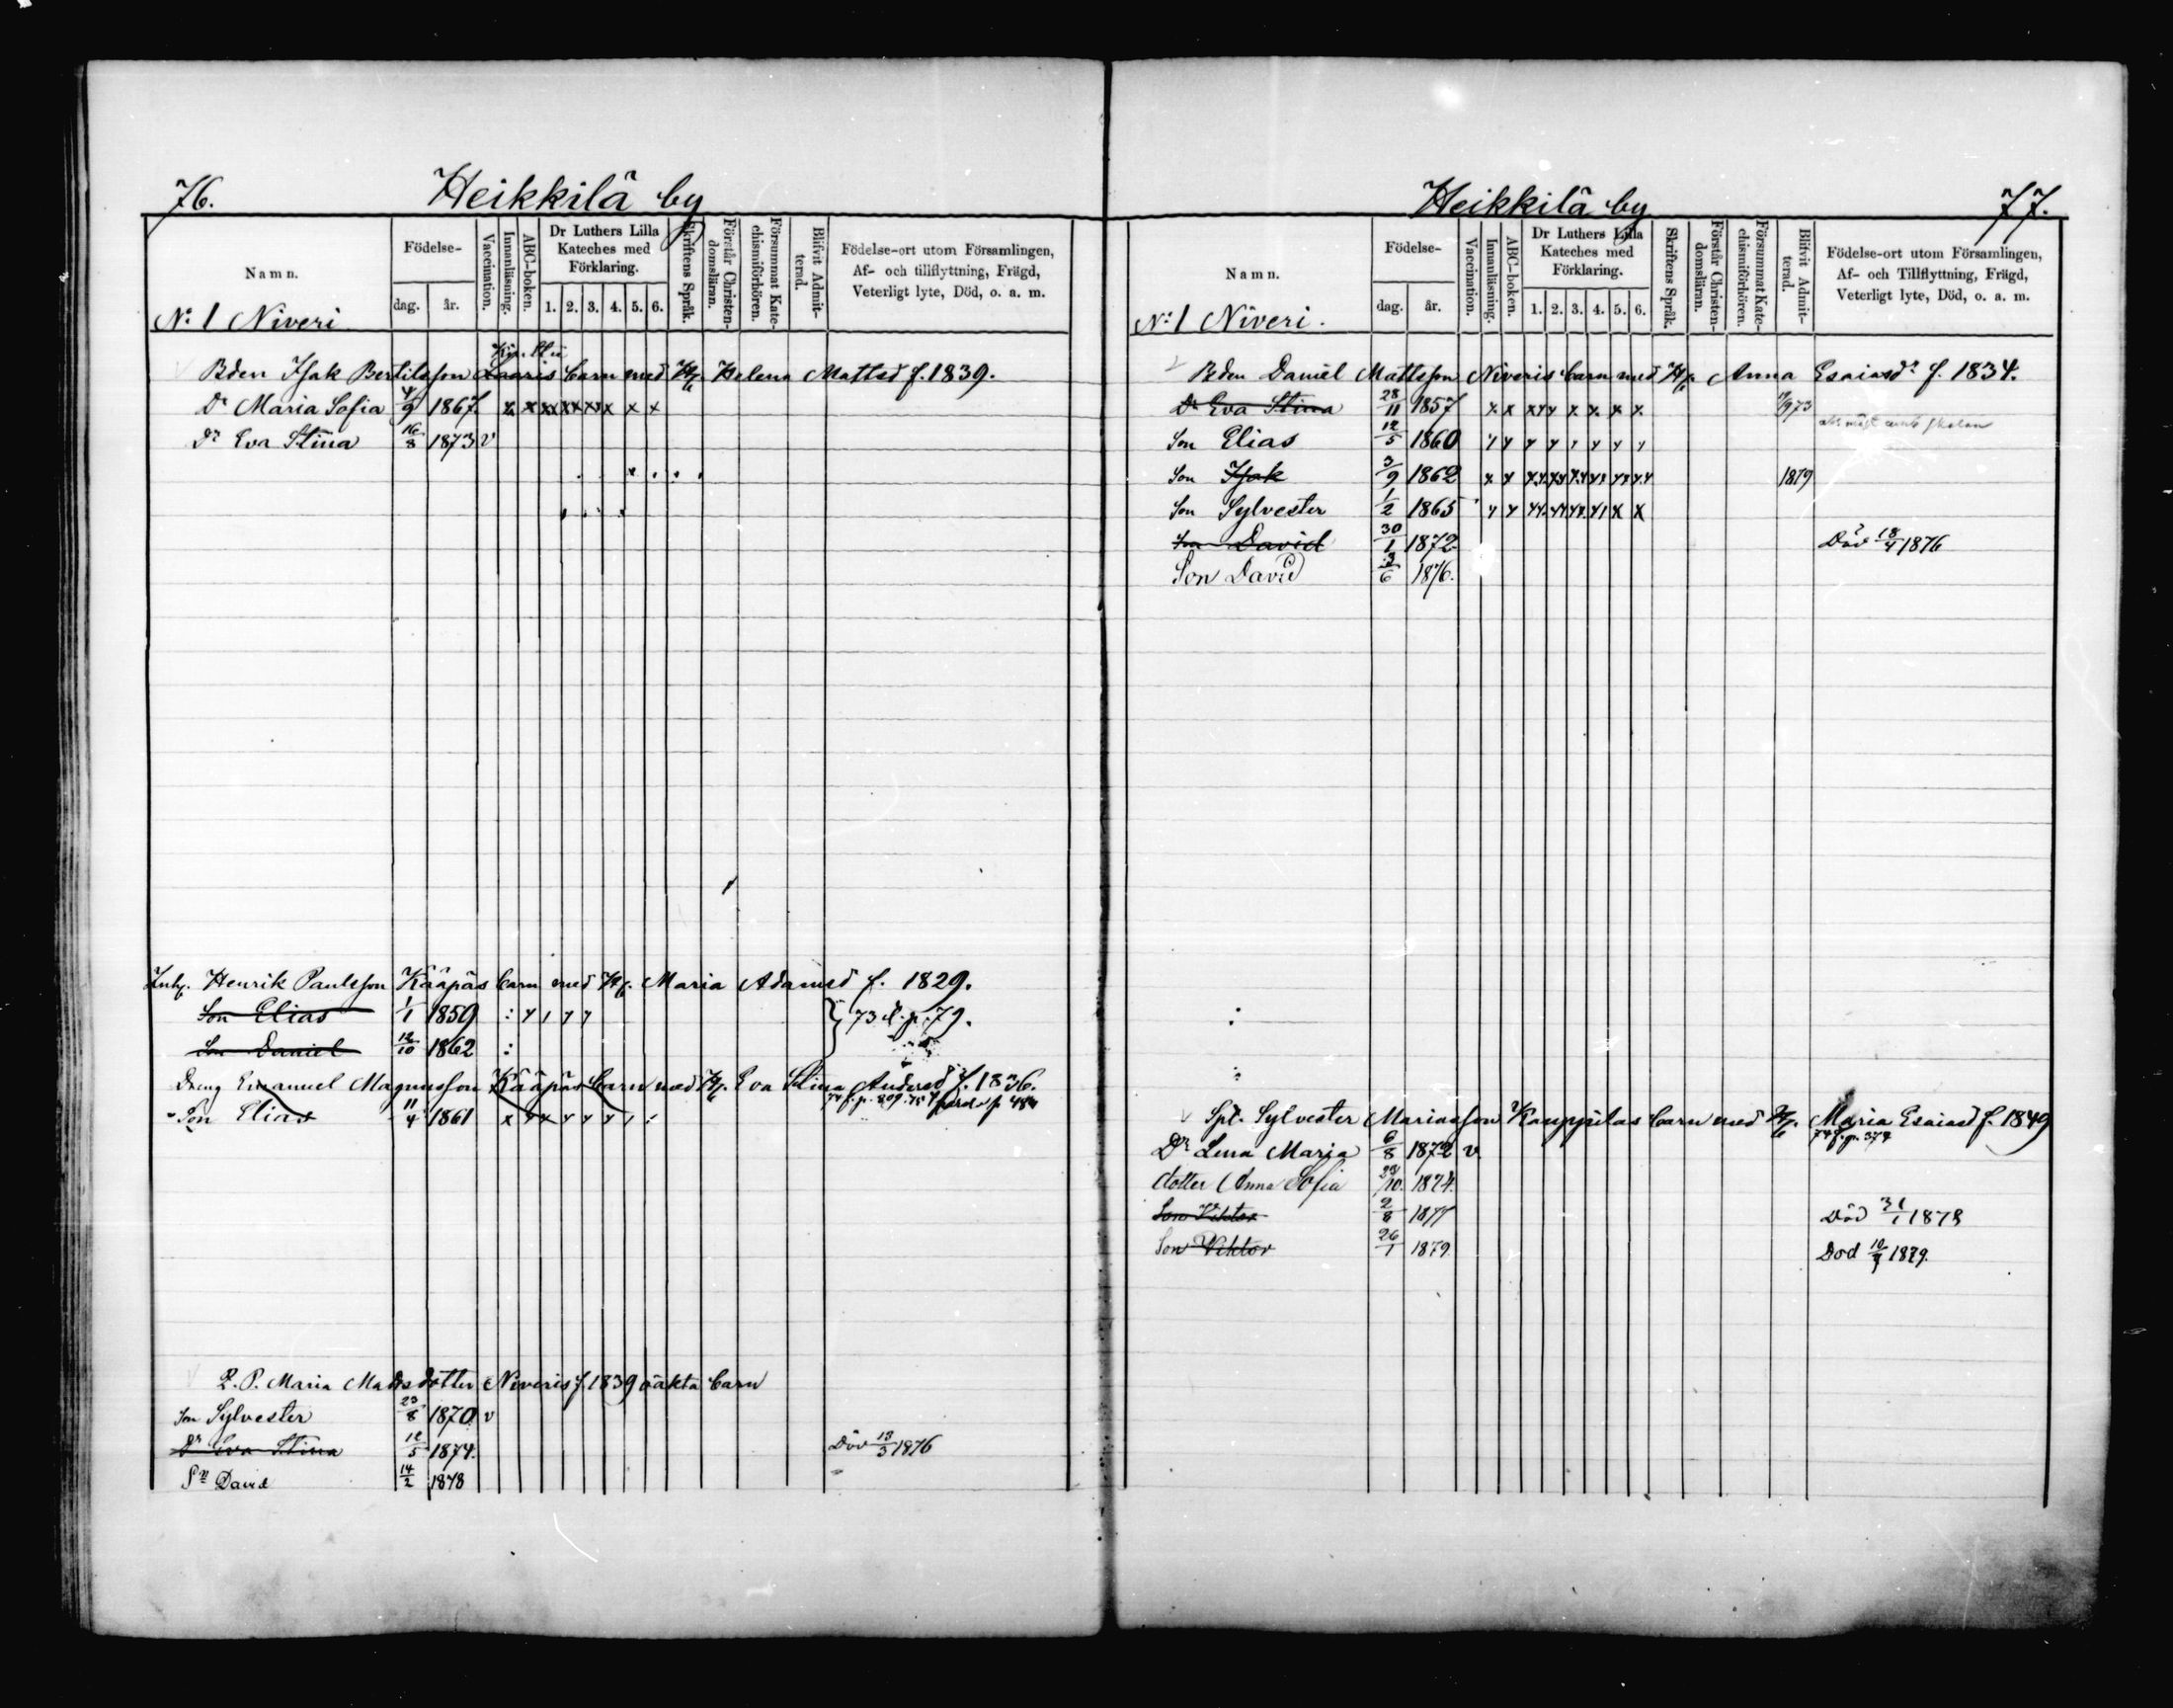 76.
Heikkilä by
Namn.
Födelse-
dag.
år.
Vaccination.
Innanläsning.
ABC-boken.
Dr Luthers Lilla
Kateches med
Förklaring.
1. 2. 3. 4. 5. 6.
Skriftens Språk.
Förstår Christen-
domsläran.
Försummat Kate-
chismiförhören.
Blifvit Admit-
terad.
Födelse-ort utom Församlingen,
Af- och tillflyttning, Frägd,
Veterligt lyte, Död, o. a. m.
No 1 Niveri
Bden Isak Bertilsson Laaris barn med H. Helena Mattsd f. 1839.
Dr Maria Sofia 4/9 1867. x x xx xx xx x x x
Dr Eva Stina 16/8 1873 v
Inh. Henrik Paulsson Kääpäs barn med H. Maria Adamsd f. 1829.
Son Elias 1/1 1859
Son Daniel 12/10 1862
} 73 d. p. 79.
Dreng Emanuel Magnusson Kääpäs barn med H. Eva Stina Andersd f. 1836.
Son Elias 11/4 1861
P. P. Maria Madsdotter Niveris f. 1839 oäkta barn
Son Sylvester 23/8 1870 v
Dr Eva Stina 12/5 1874. Död 13/3 1876
Sn David 14/2 1878
Heikkilä by
77.
Namn.
Födelse-
dag.
år.
Vaccination.
Innanläsning.
ABC-boken.
Dr Luthers Lilla
Kateches med
Förklaring.
1. 2. 3. 4. 5. 6.
Skriftens Språk.
Förstår Christen-
domsläran.
Försummat Kate-
chismiförhören.
Blifvit Admit-
terad.
Födelse-ort utom Församlingen,
Af- och Tillflyttning, Frägd,
Veterligt lyte, Död, o. a. m.
No 1 Niveri.
Bden Daniel Mattsson Niveris barn med H. Anna Esaiasdr f. 1834.
Dr Eva Stina 28/11 1857
Son Elias 12/5 1860
Son Isak 3/9 1862 1879
Son Sylvester 1/2 1865
Son David 30/1 1872 Död 18/4 1876
Son David 3/6 1876.
Spt. Sylvester Mariasson Kauppilas barn med H. Maria Esaiasd f. 1849
Dr Lena Maria 6/8 1872 v
dotter Anna Sofia 23/10. 1874.
Son Viktor 2/8 1877 Död 31/1 1878
Son Viktor 26/1 1879. Död 10/9 1879.